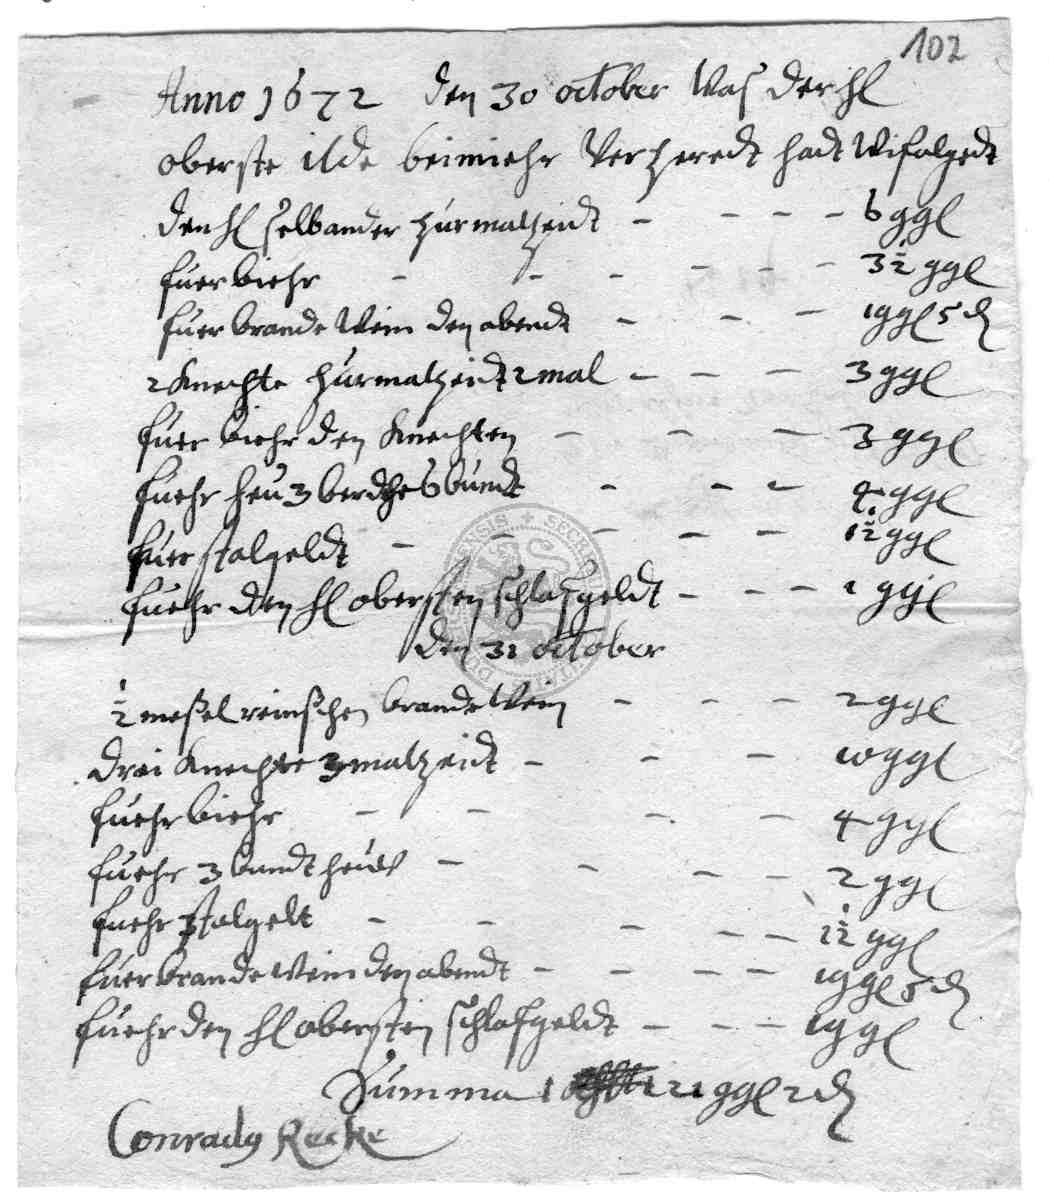 102
Anno 1672 den 30 october Waß der hl
oberste ilde beimiehr Verzheredt hadt Wifolgedt
den hl selbander zur malzeidt - - - - 6 ggl
fuer biehr - - - - - - 3 1/2 ggl
fuer brande Wein den abendt - - - 1 ggl 5 d
2 Knechte zur malzeidt 2 mal - - - 3 ggl
fuer biehr den Knechten - - - 3 ggl
fuehr heu 3 6 bundt - - - 4 ggl
fuer stalgeldt - - - - - 1 1/2 ggl
fuehr den hl obersten schlafgeldt - - - 1 ggl
den 31 october
1/2 meßel reinschen brande Wein - - - 2 ggl
drei Knechte 3 malzeidt - - - 10 ggl
fuehr biehr - - - - 4 ggl
fuehr 3 bundt heuws - - - - 2 ggl
fuehr stalgelt - - - - - 1 1/2 ggl
fuer brande Wein den abendt - - - - 1 ggl 5 d
fuehr den hl obersten schlafgeldt - - - 1 ggl
Summa 1 21 ggl 2 d
Conrady Recke